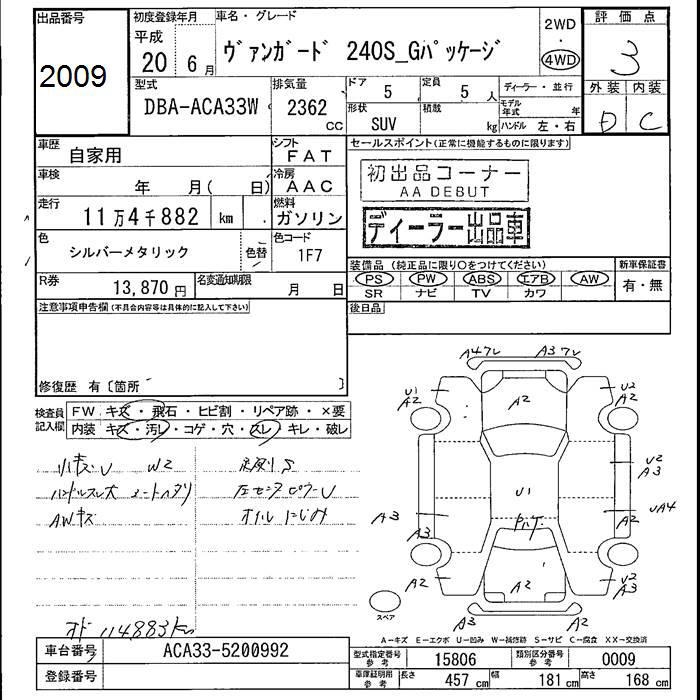 出品番号
2009
初度登録年月
平成
20 6月
車名・グレード
ヴァンガード 240S_Gパッケージ
2WD
・
4WD
評価点
3
外装 内装
D C
型式
DBA-ACA33W
排気量
2362
CC
ドア
5
定員
5 人
形状
SUV
積載
kg
ディーラー・並行
モデル年式 年
ハンドル 左・右
車歴
自家用
シフト
FAT
車検
年 月( 日)
冷房
AAC
走行
11万4千882 km
燃料
ガソリン
色
シルバーメタリック
色替
色コード
1F7
R券
13,870 円
名変通知期限
月 日
セールスポイント(正常に機能するものに限ります)
初出品コーナー
AA DEBUT
ディーラー出品車
装備品(純正品に限り○をつけてください)
PS PW ABS エアB AW
SR ナビ TV カワ
新車保証書
有・無
後日品
注意事項申告欄(不具合内容等は具体的に記入して下さい)
修復歴 有〔箇所 〕
検査員
記入欄
FW キズ・飛石・ヒビ割・リペア跡・×要
内装 キズ・汚れ・コゲ・穴・スレ・キレ・破レ
小キズU W2
ハンドルスレ大 シートヘタリ
AWキズ
足廻りS
左センタピラーU
オイルにじみ
オド 114883km
A4ワレ A3ワレ
U1
A2
A2
U2
A2
U2
A3
U1
A3
A3
UA4
A2
A2
A2
U2
A3
A3
A2
スペア
A-キズ E-エクボ U-凹み W-補修跡 S-サビ C-腐食 XX-交換済
車台番号
ACA33-5200992
登録番号
型式指定番号
参考
15806
類別区分番号
参考
0009
車庫証明用
参考
長さ
457 cm
幅
181 cm
高さ
168 cm